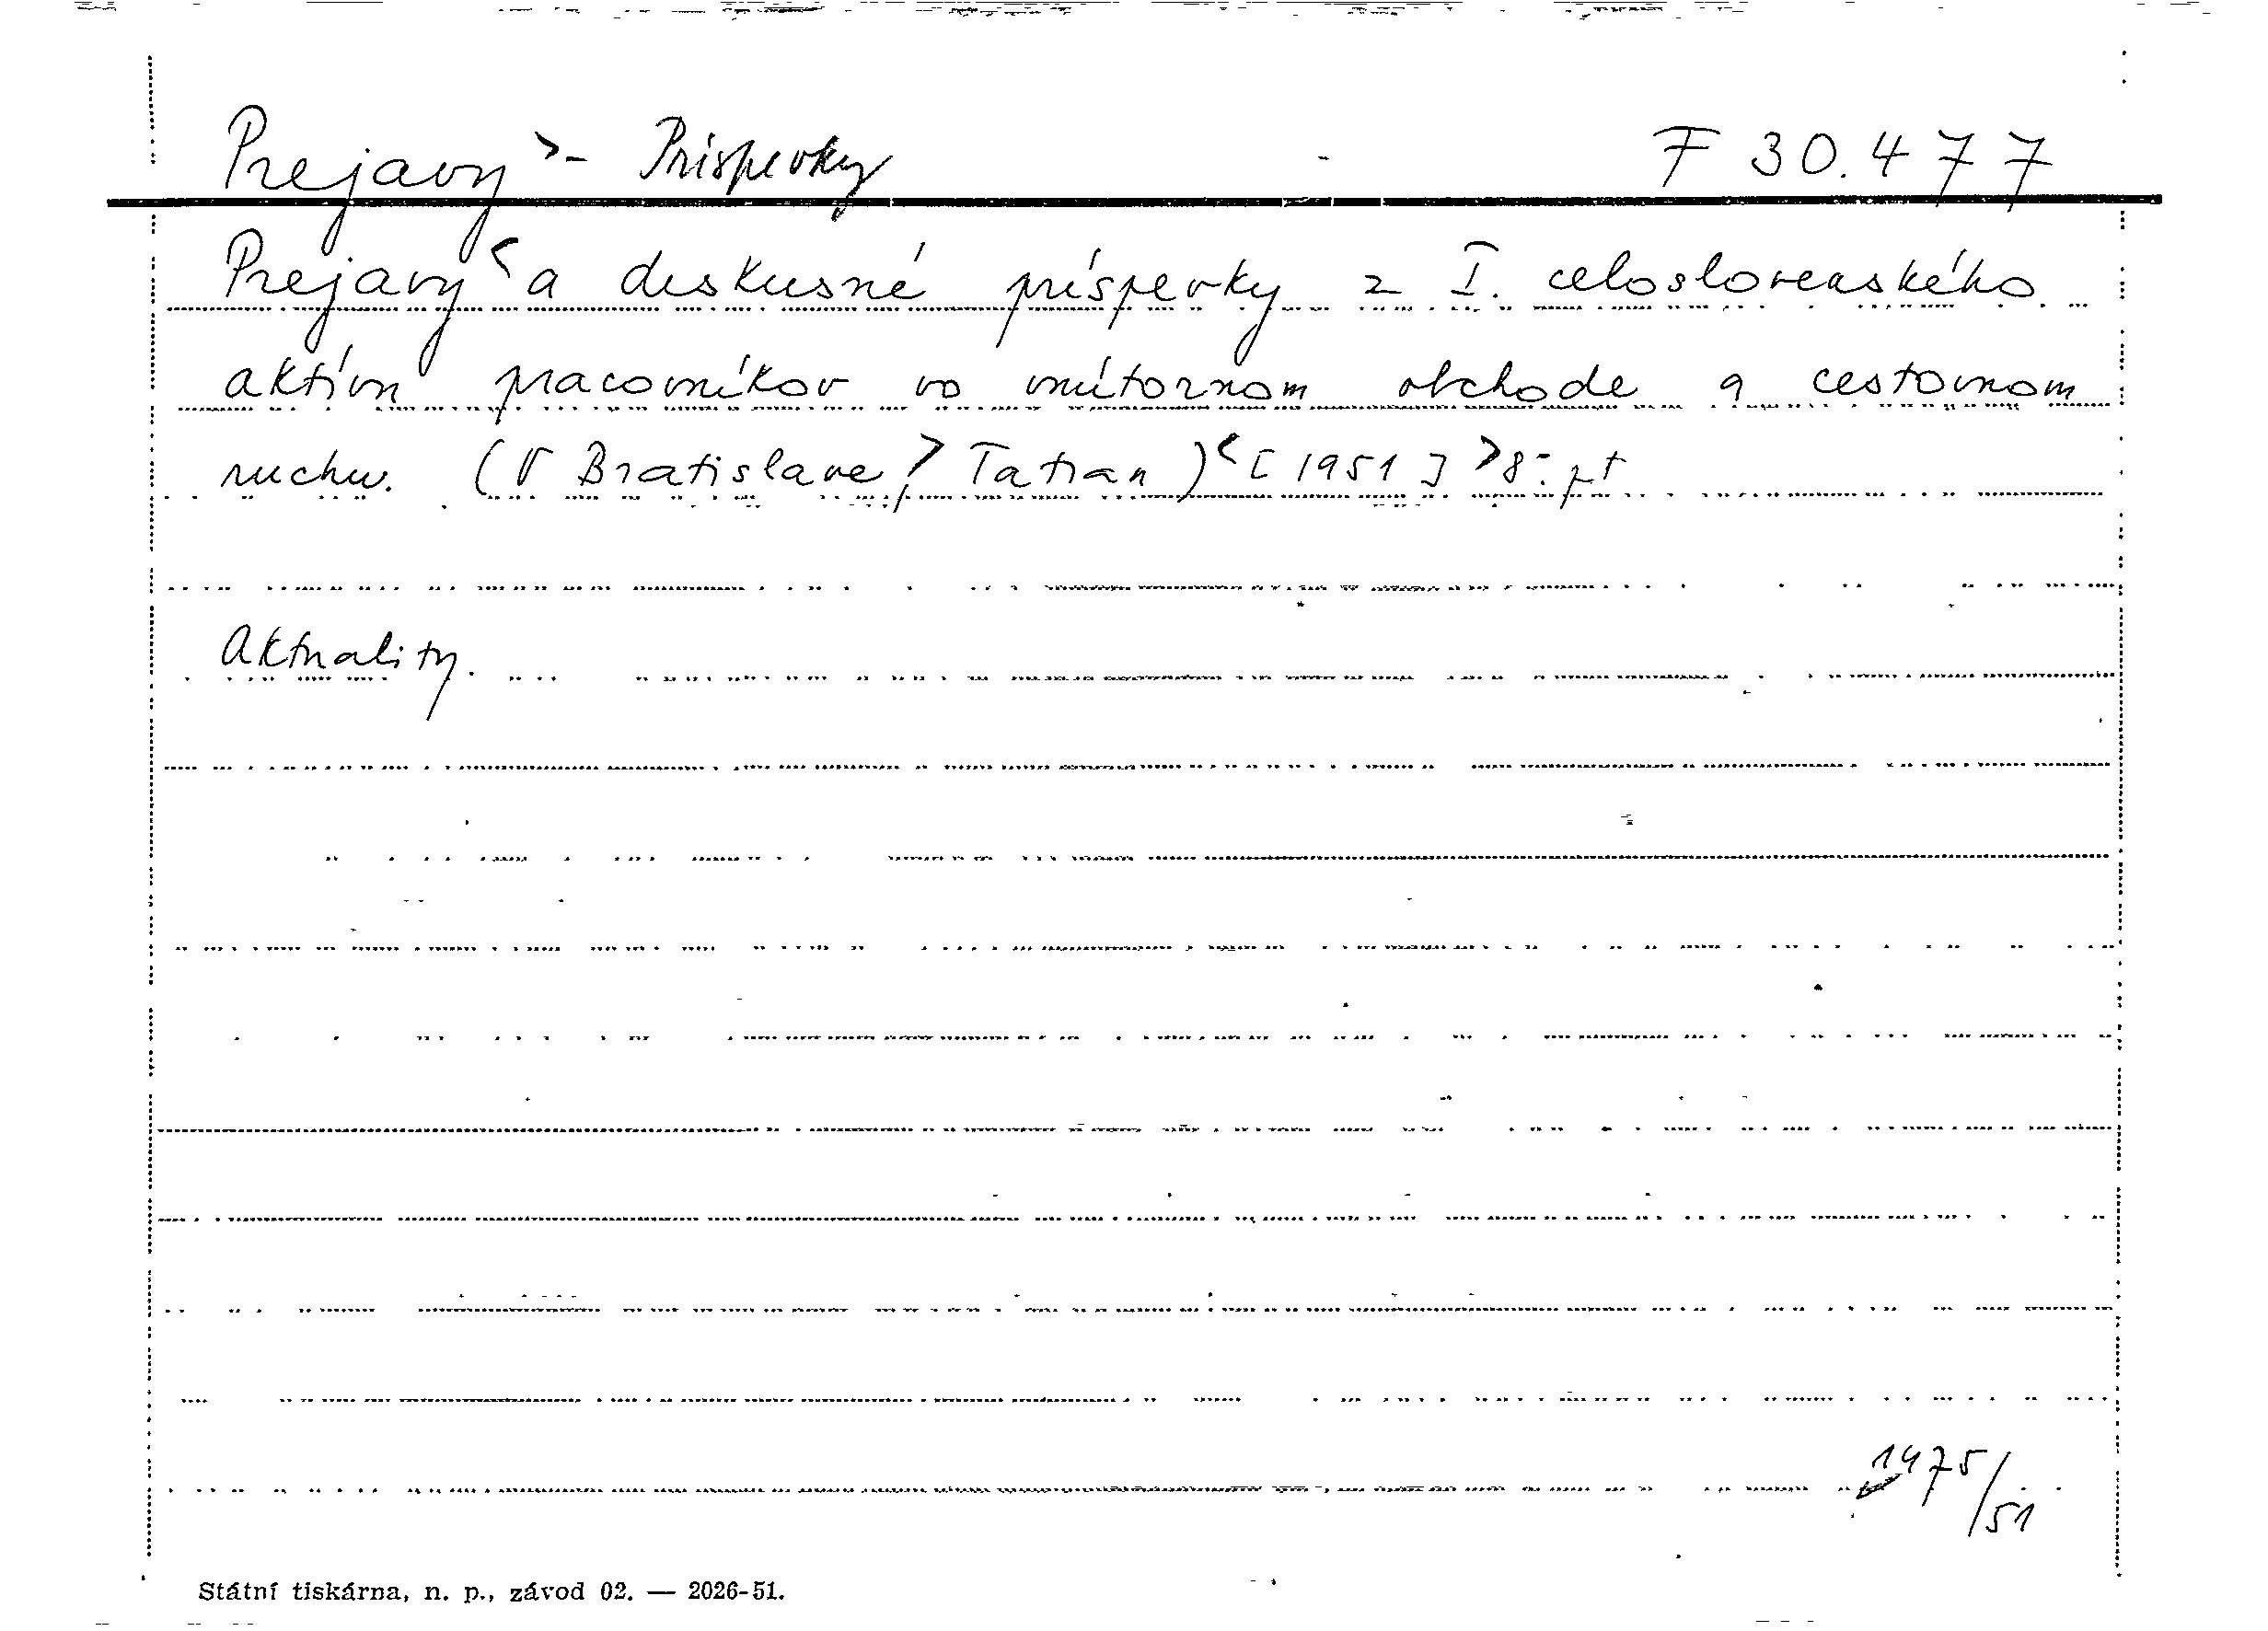 Prejavy >- Príspevky F 30.477
Prejavy < a diskusné príspevky z I. celoslovenského
aktívu pracovníkov vo vnútornom obchode a cestovnom
ruchu. (V Bratislave,> Tatran) < [1951] > 8°.
Aktuality.
1475/51
Státní tiskárna, n. p., závod 02. — 2026-51.